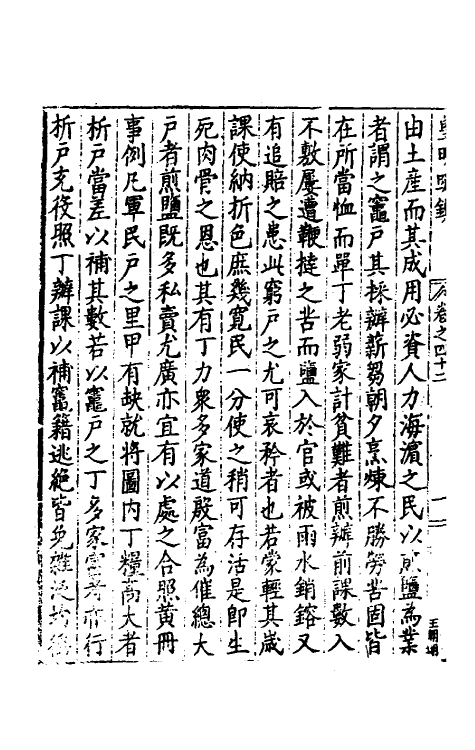 卷之四十二
由土産而其成用必資人力海濵之民以煎鹽為業
者謂之竈戶其採辦薪芻朝夕烹煉不勝勞苦固皆
在所當恤而單丁老弱家計貧難者煎辦前課數入
不敷屢遭鞭撻之苦而鹽入於官或被雨水銷鎔又
有追賠之患此窮戶之尤可哀矜者也若蒙輕其歲
課使納折色庶幾寬民一分使之稍可存活是即生
死肉骨之恩也其有丁力衆多家道殷富為催總大
戶者煎鹽既多私賣尤廣亦宜有以處之合照黃冊
事例凡軍民戶之里甲有缺就將圖內丁糧高大者
析戶當差以補其數若以竈戶之丁多家富者亦行
析戶充役照丁辦課以補舊籍逃絕皆免雜泛